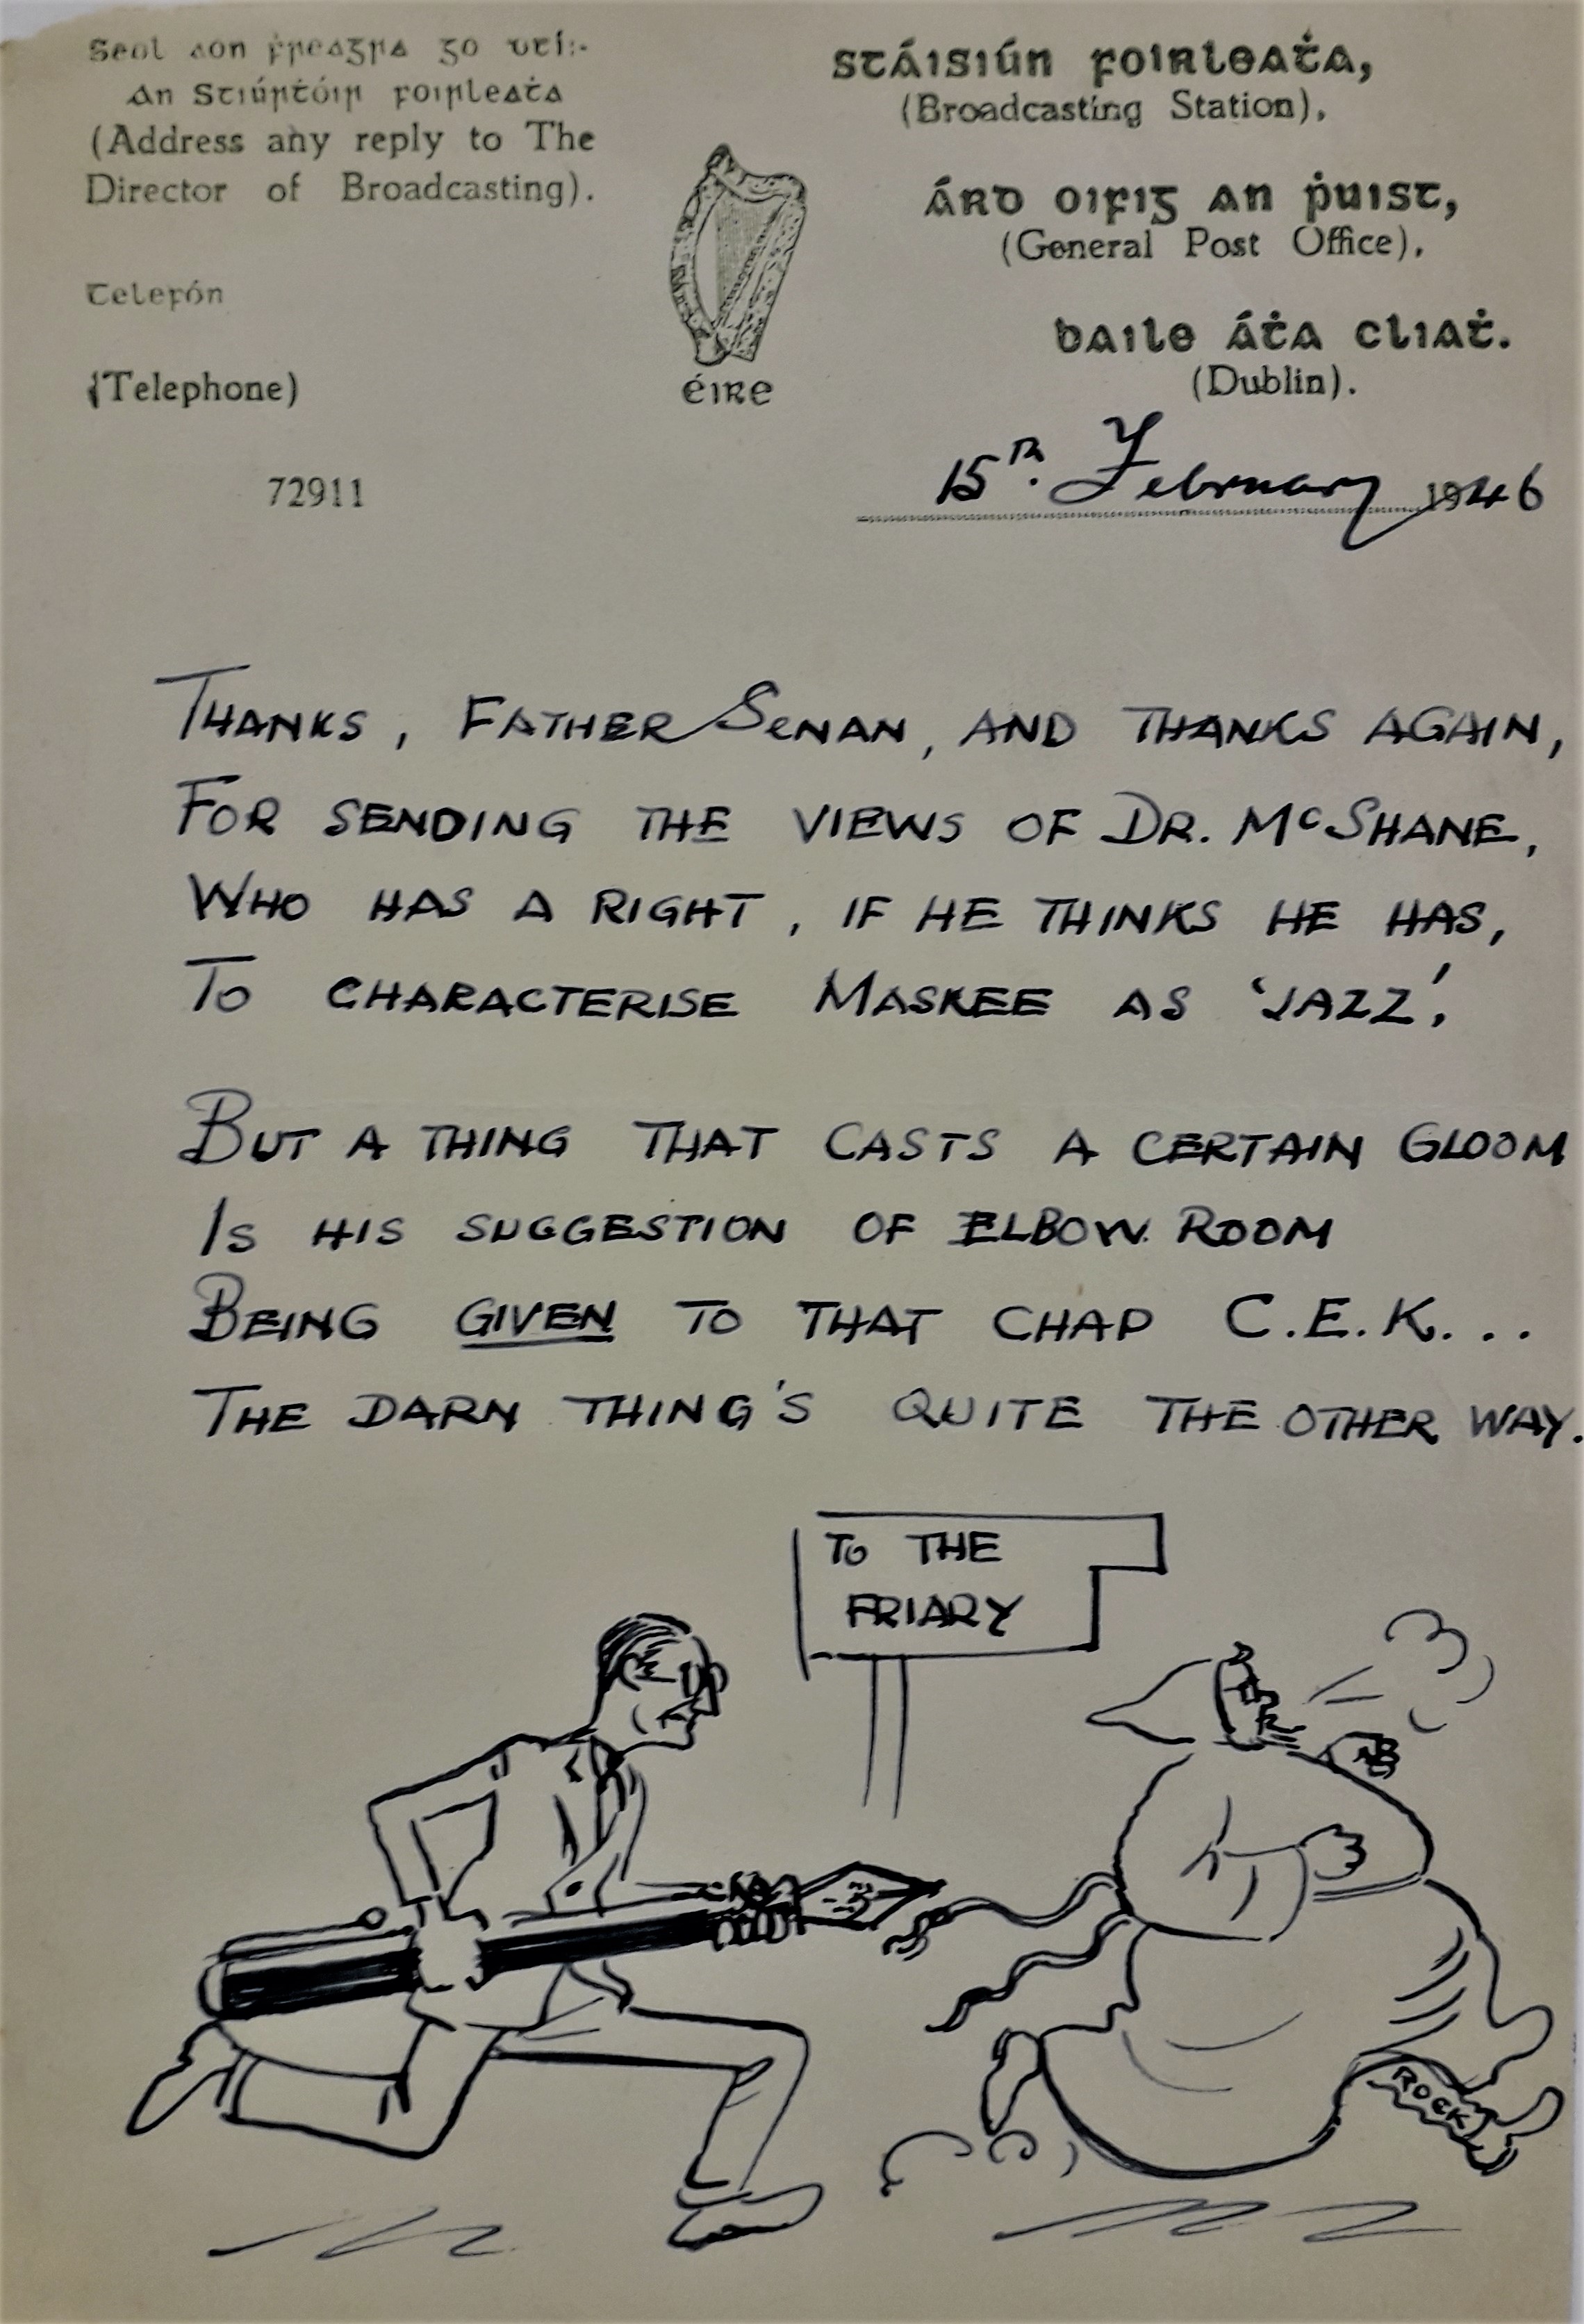 Seol aon ḟreagra go dtí:-
An Stiúrṫóir foirleaṫa
(Address any reply to The
Director of Broadcasting).
Telefón
(Telephone)
72911
éire
stáisiún foirleaṫa,
(Broadcasting Station),
árd oifig an ṗuist,
(General Post Office),
baile áṫa cliaṫ.
(Dublin).
15th. February 1946
THANKS, FATHER SENAN, AND THANKS AGAIN,
FOR SENDING THE VIEWS OF DR. McSHANE,
WHO HAS A RIGHT, IF HE THINKS HE HAS,
TO CHARACTERISE MASKEE AS 'JAZZ'.
BUT A THING THAT CASTS A CERTAIN GLOOM
IS HIS SUGGESTION OF ELBOW ROOM
BEING GIVEN TO THAT CHAP C.E.K...
THE DARN THING'S QUITE THE OTHER WAY.
TO THE
FRIARY
ROCK